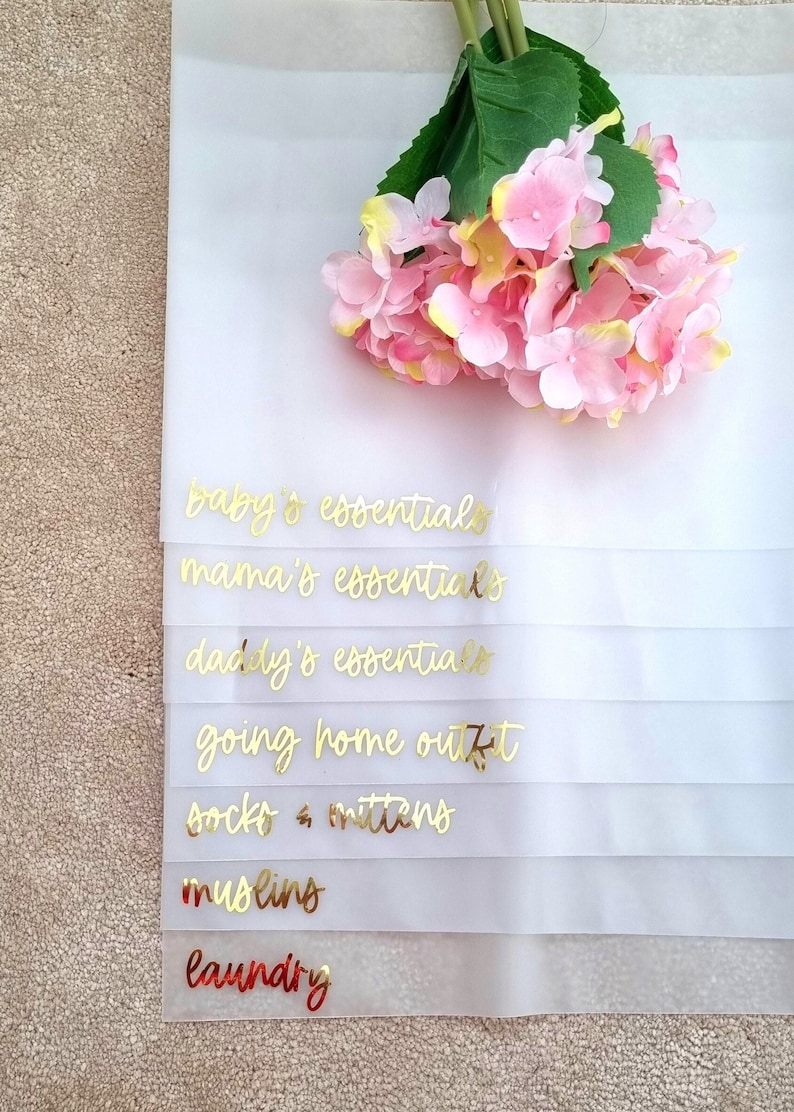 baby's essentials
mama's essentials
daddy's essentials
going home outfit
socks & mittens
muslins
laundry